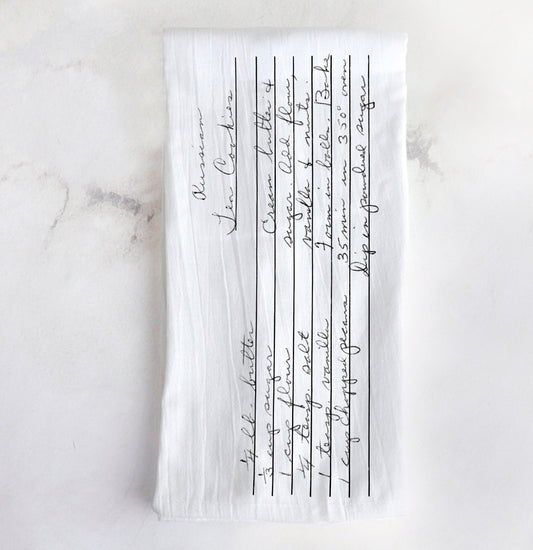 Russian
Tea Cookies
¼ lb. butter
⅓ cup sugar
1 cup flour
¼ teasp. salt
1 teasp. vanilla
1 cup chopped pecans
Cream butter &
sugar. Add flour,
vanilla & nuts.
Form in balls. Bake
35 min in 350° oven
Dip in powdered sugar